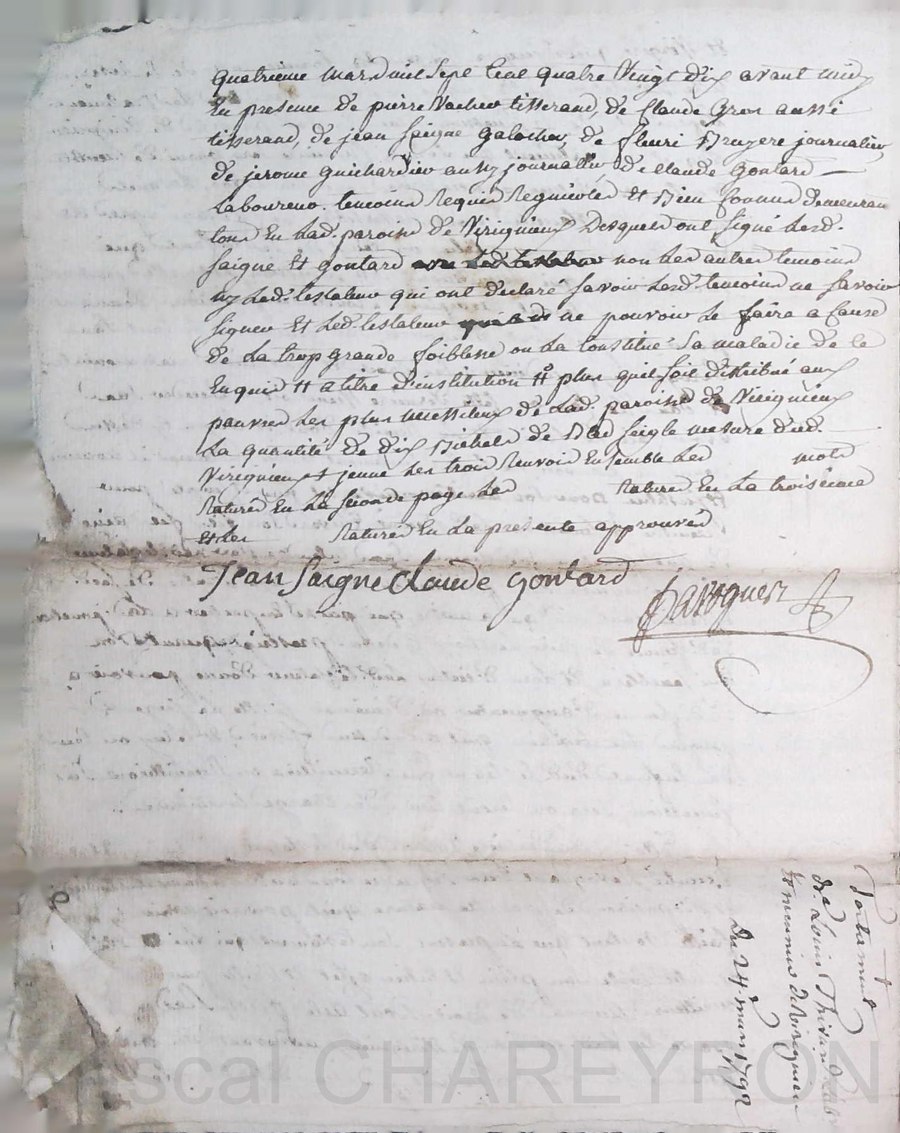 quatrieme mars mil sept cent quatre vingt dix avant midy
En presence de pierre vacher tisserand, de Claude Gros aussi
tisserand, de jean saigne galocher, de fleuri Bruyere journalier
de jerome guichardier aussy journallier, de Claude gontard
laboureur temoins Requis Regnicoles Et Bien Connus demeurans
tous En lad. paroisse de Viricgnieux Desquels ont signé lesd.
saigne Et gontard non les autres temoins
ny led. testateur qui ont declaré savoir lesd. temoins ne savoir
signer Et led. testateur ne pouvoir le faire a Cause
de la trop grande foiblesse ou la Constitué sa maladie de ce
Enquis # a titre d'institution # plus qu'il soit distribué aux
pauvres les plus de lad. paroisse de Viricgnieux
la quantité de dix Bichets de Bled seigle mesure dud.
Viricgnieux les trois Renvois Ensemble les mots
Raturés En la seconde page les Raturés En la troisieme
Et les Raturés En la presente approuvés
Jean Saigne Claude gontard
Testament
de Louis
de Viricgnieu
Du 24 mars 1792
Pascal CHAREYRON